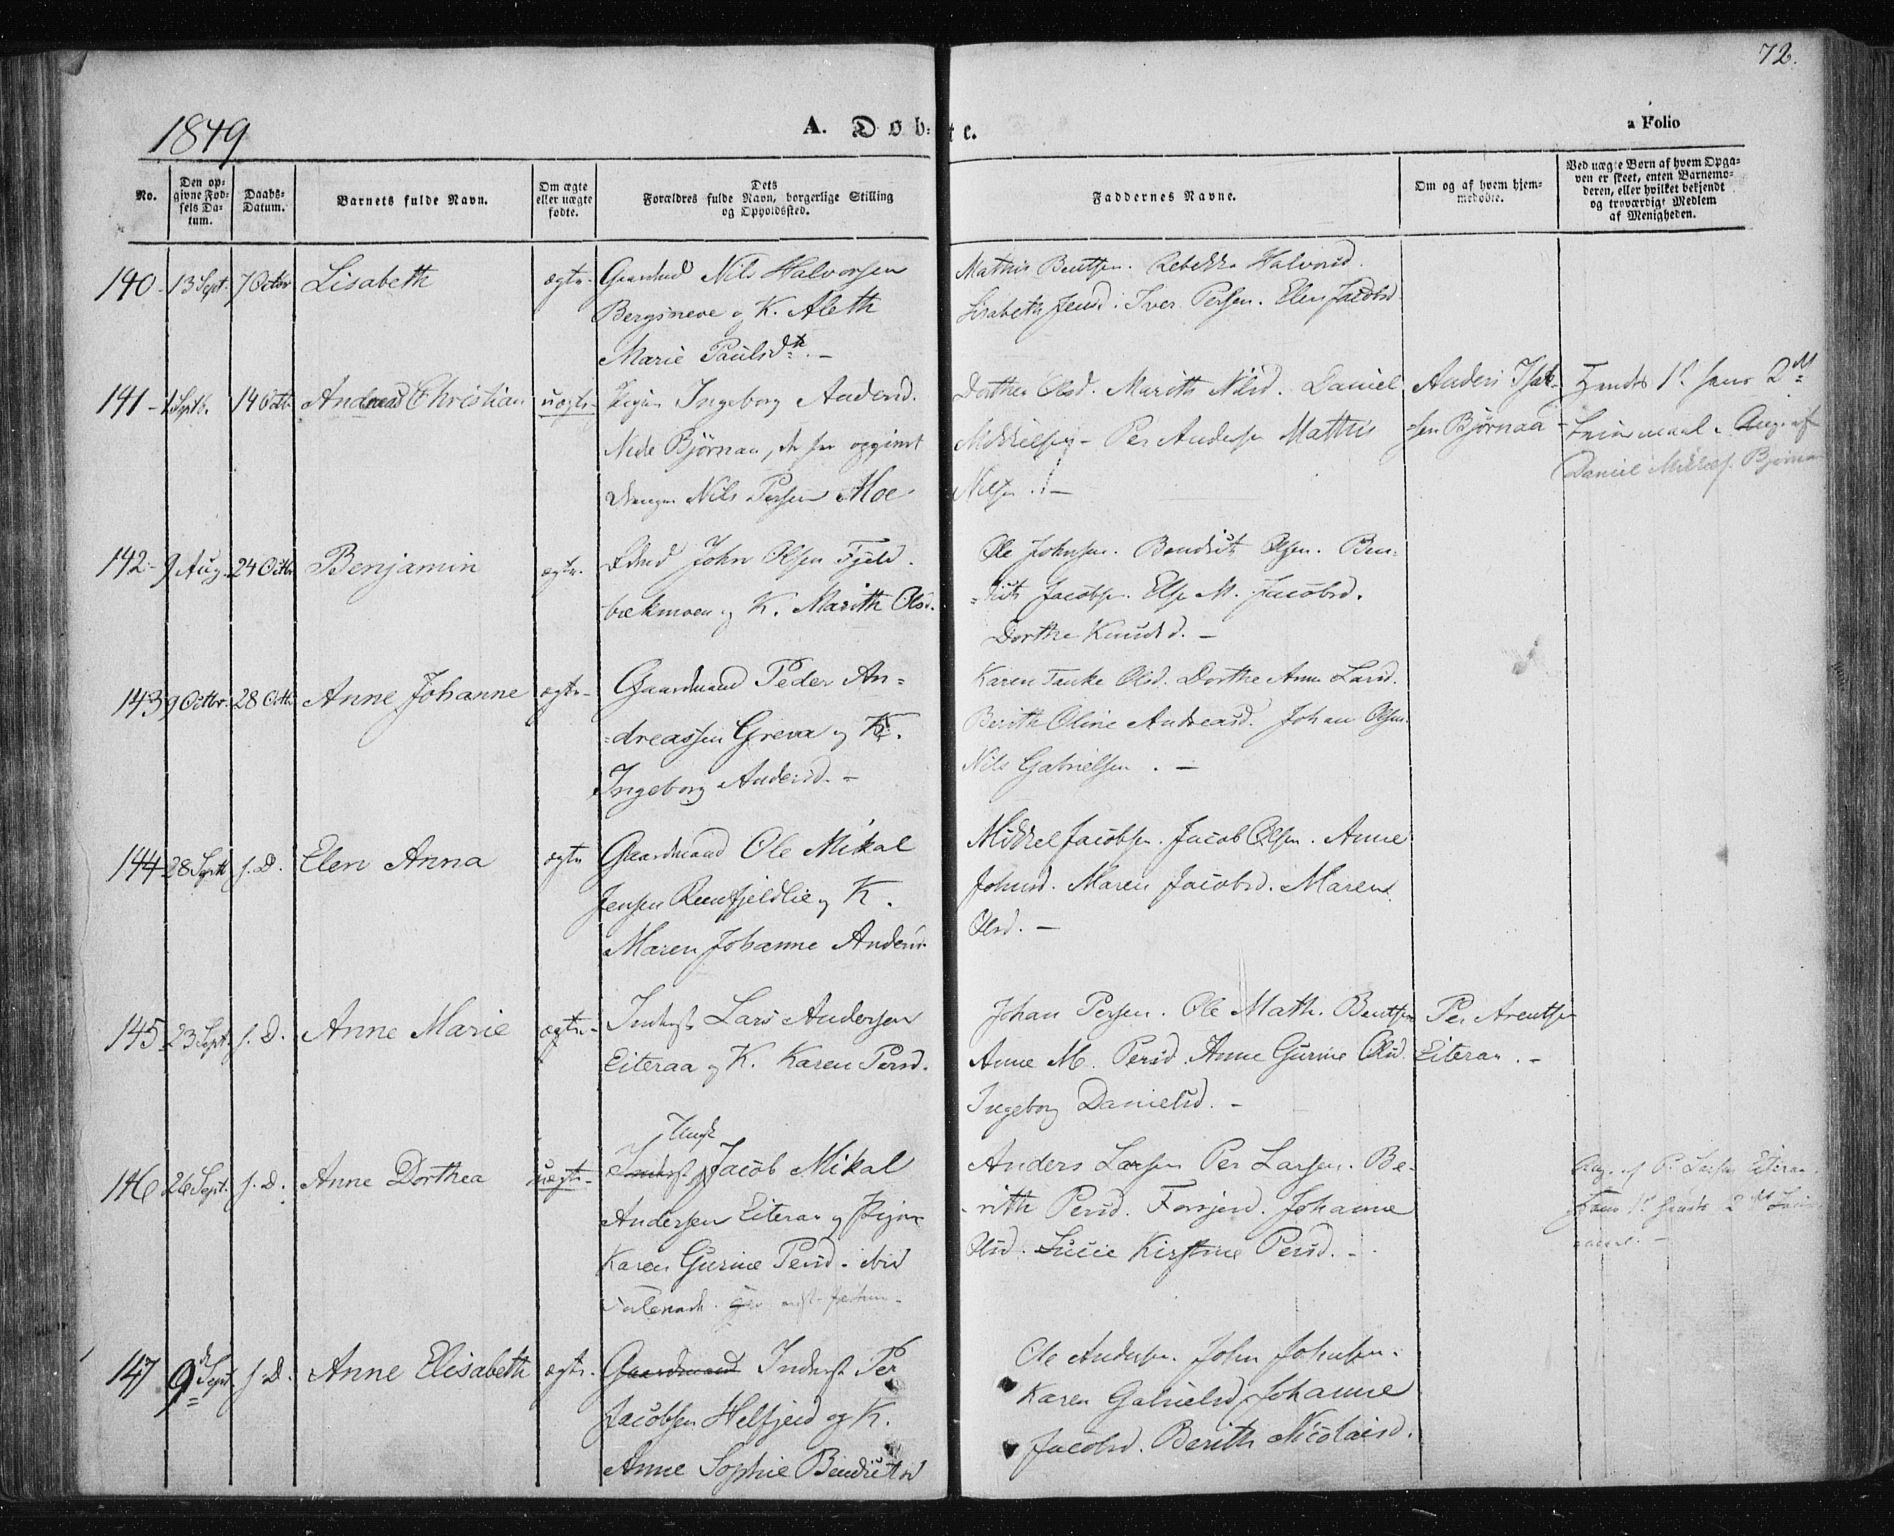 72.
1849
A. Døbte.
a Folio
No.
Den opgivne Fødsels Datum.
Daabs-Datum.
Barnets fulde Navn.
Om ægte eller uægte fødte.
Forældres fulde Navn, borgerlige Stilling og Opholdssted.
Faddernes Navne.
Om og af hvem hjemmedøbte.
Ved uægte Børn af hvem Opgaven er skeet, enten Barnemoderen, eller hvilket bekjendt og troværdigt Medlem af Menigheden.
140 - 13 Sept. 7 Octbr Lisabeth ægte. Gaardmd Nils Halvorsen
Bergsneve og K. Aleth
Marie Paulsdtr. -
Mathis Bentsen. Rebekka Halvorsd.
Lisabeth Jensd. Iver Persen. Elen Jacobsd.
141 - 1 Sptb. 14 Octb. Andreas Christian uægte Pigen Ingeborg Andersd.
Nede Bjørnaa, der har opgivet
Drengen Nils Persen Moe
Dorthea Olsd. Marith Nilsd. Daniel
Mikkelsen - Per Andersen Mathis
Nilsen. -
Anders Isak-
sen Bjørnaa
Hendes 1st hans 2det
Leiermaal. Ang. af
Daniel Mikkels. Bjørnaa
142 - 9 Aug. 24 Octbr Benjamin ægte. John Olsen Fjeld-
bækmoen og K. Marith Olsd.
Ole Johnsen. Bendict Olsen. Ben-
dict Jacobsen. Else M. Jacobsd.
Dorthe Knudsd. -
143 9 Octbr. 28 Octb. Anne Johanne ægte - Gaardmand Peder An-
dreassen Greva og K.
Ingeborg Andersd. -
Karen Tanke Olsd. Dorthe Anna Larsd.
Berith Oline Andreasd. Johan Olsen.
Nils Gabrielsen. -
144 28 Septb s. D. Elen Anna ægte Gaardmand Ole Mikal
Jensen Reenfjeldlie og K.
Maren Johanne Andersd.
Mikkel Jacobsen. Jacob Olsen. Anne
Johnsd. Maren Jacobsd. Maren
Olsd. -
145 23 Sept. s. D. Anne Marie ægte - Inderst Lars Andersen
Eiteraa og K. Karen Persd.
Johan Persen. Ole Math. Bentsen
Anne M. Persd. Anne Gurine Olsd.
Ingeborg Danielsd. -
Per Arentsen
Eiteraa. -
Ungk
146 26 Sept. s. D. Anne Dorthea uægte - Inderst Jacob Mikal
Andersen Eiteraa og Pigen
Karen Gurine Persd.
Anders Larsen Per Larsen. Be-
rith Persd. Forsjord. Johanne
Olsd. Lucie Kirstine Persd. -
Ang. af P. Larsen Eiteraa
hans 1st hendes 2det Leier-
maal. -
147 9 Sept. s. D. Anne Elisabeth ægte. Gaardmand Inderst Per
Jacobsen Helfjeld og K.
Anne Sophie Bendictsd
Ole Andersen. John Johnsen.
Karen Gabrielsd, Johanne
Jacobsd. Berith Nicolaisd.